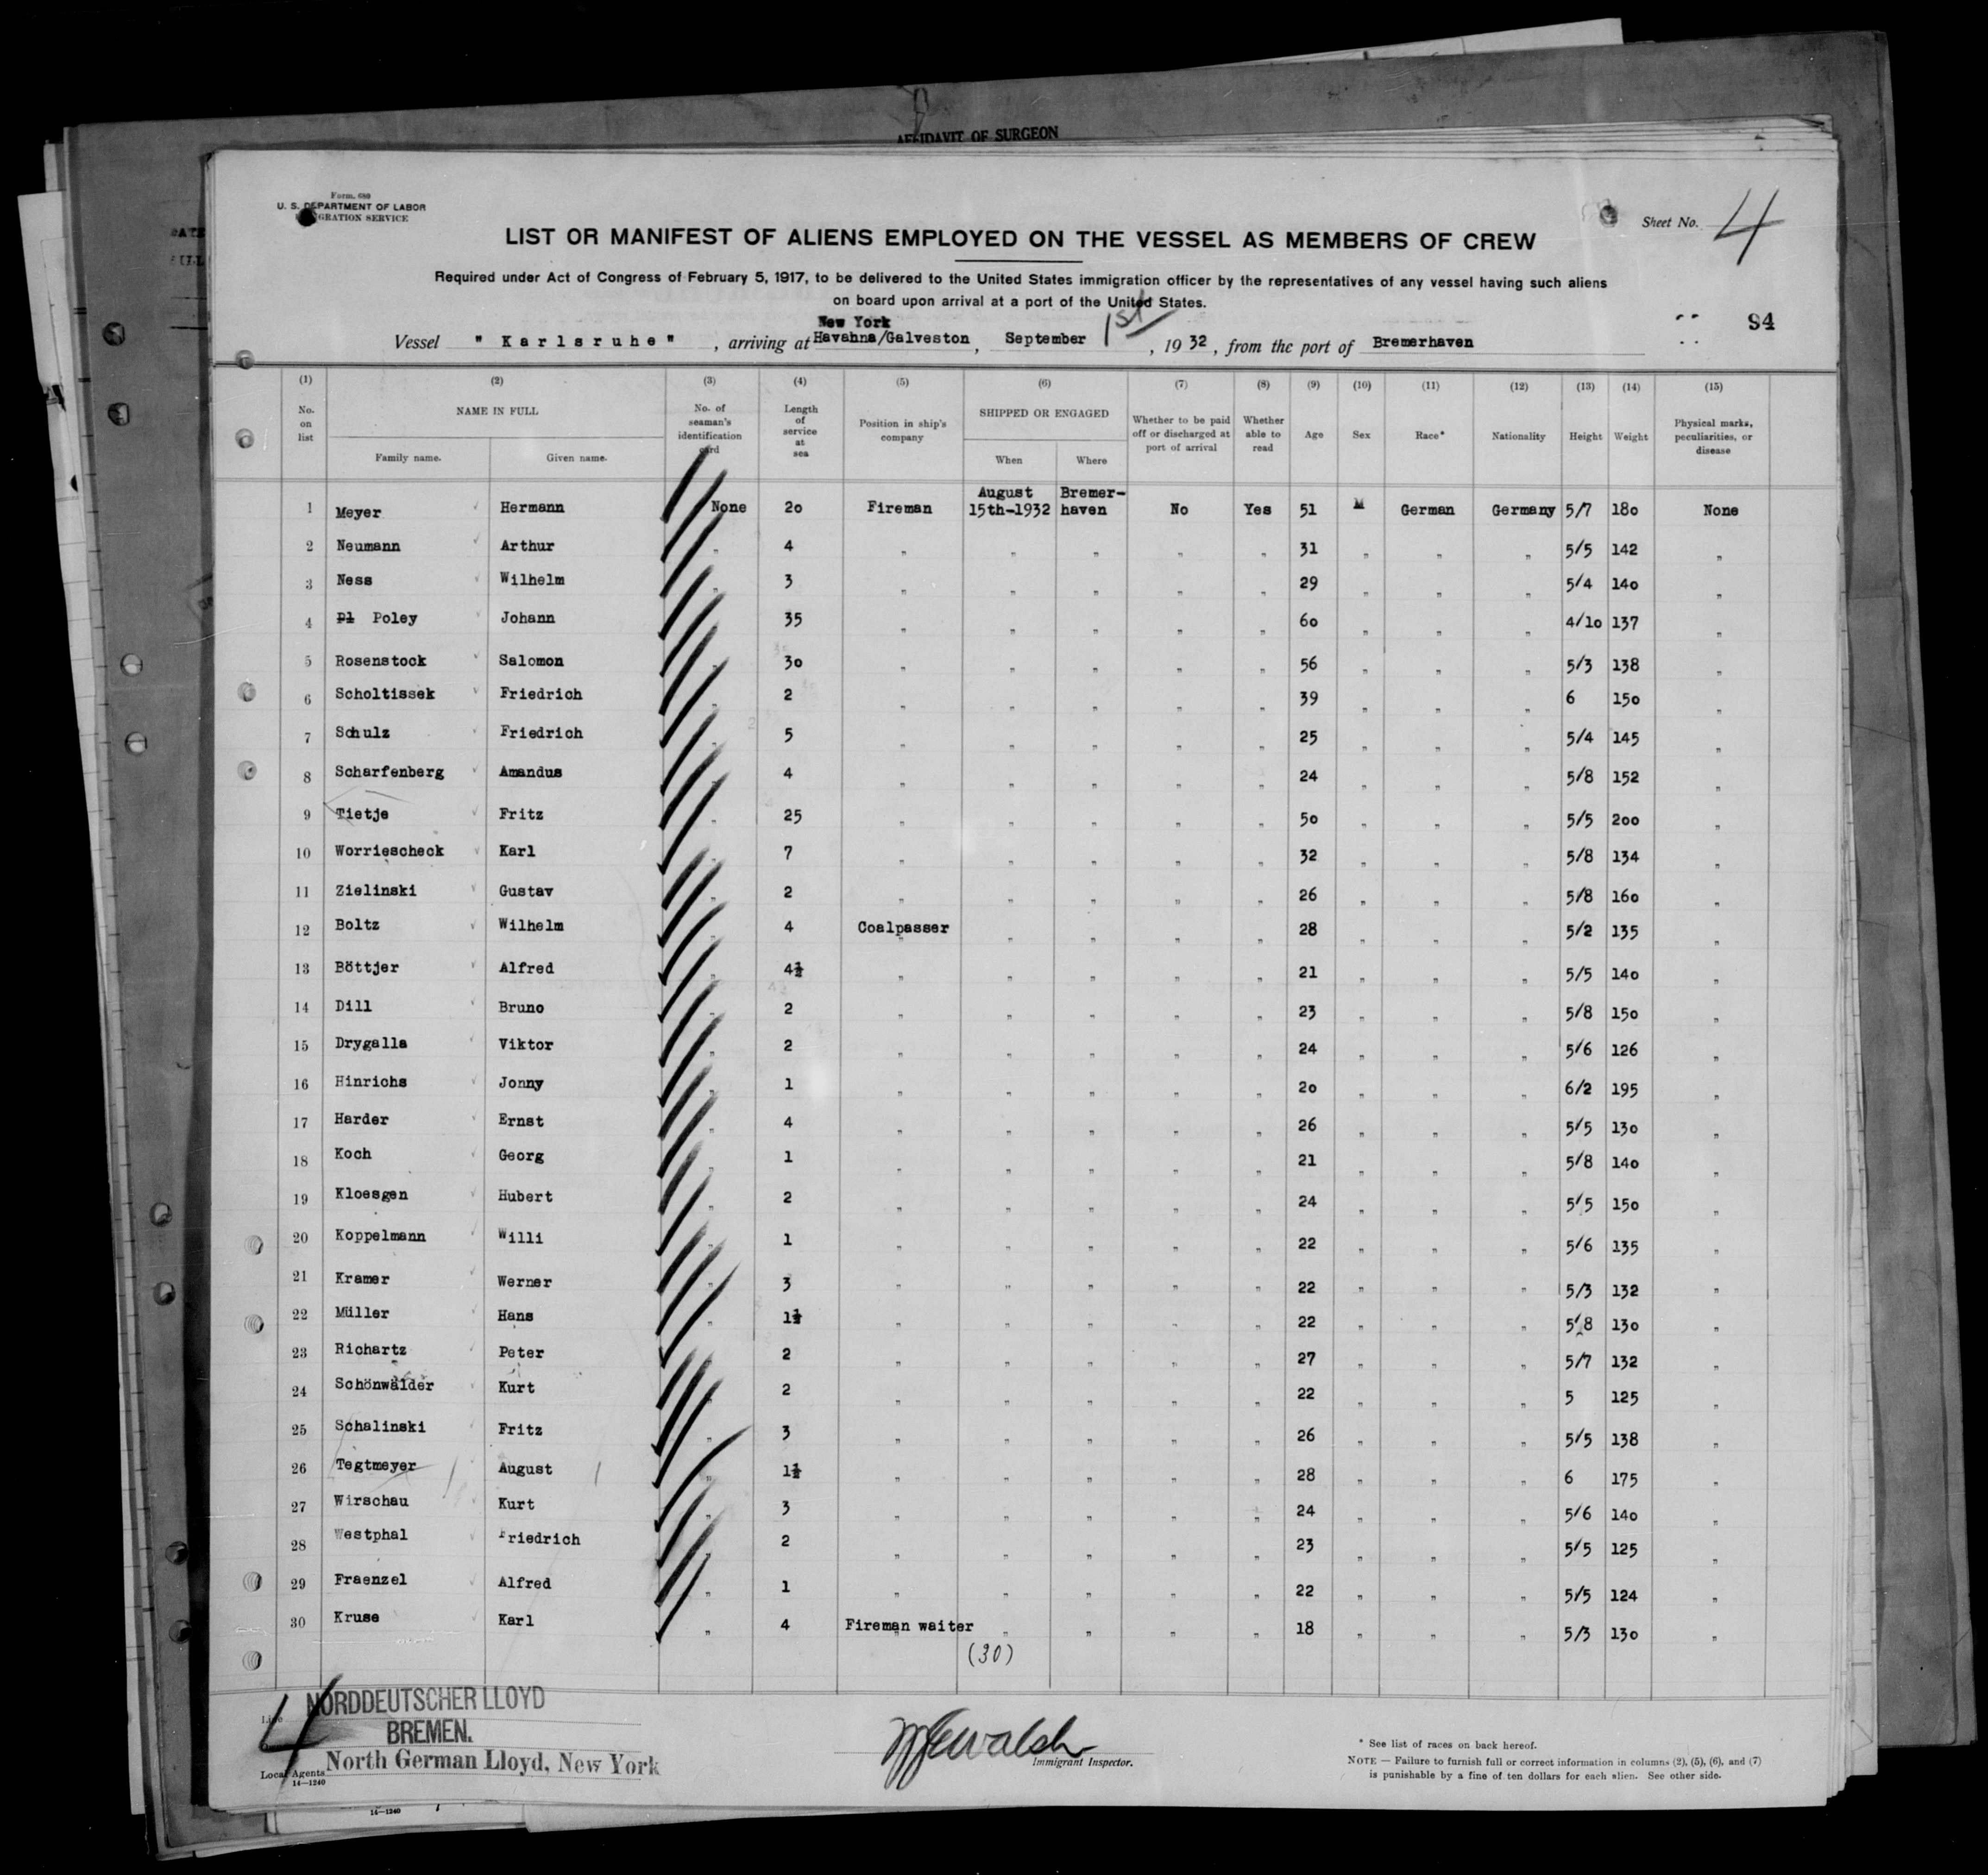 AFFIDAVIT OF SURGEON
Form. 689
U. S. DEPARTMENT OF LABOR
GRATION SERVICE
Sheet No. 4
LIST OR MANIFEST OF ALIENS EMPLOYED ON THE VESSEL AS MEMBERS OF CREW
Required under Act of Congress of February 5, 1917, to be delivered to the United States immigration officer by the representatives of any vessel having such aliens
on board upon arrival at a port of the United States.
New York
Vessel " Karlsruhe " , arriving at Havahna/Galveston , September 1st , 1932 , from the port of Bremerhaven
94
(1) (2) (3) (4) (5) (6) (7) (8) (9) (10) (11) (12) (13) (14) (15)
No. on list NAME IN FULL No. of seaman's identification card Length of service at sea Position in ship's company SHIPPED OR ENGAGED Whether to be paid off or discharged at port of arrival Whether able to read Age Sex Race* Nationality Height Weight Physical marks, peculiarities, or disease
Family name. Given name. When Where
August Bremer-
1 Meyer Hermann None 20 Fireman 15th-1932 haven No Yes 51 M German Germany 5/7 180 None
2 Neumann Arthur " 4 " " " " " 31 " " " 5/5 142 "
3 Ness Wilhelm " 3 " " " " " 29 " " " 5/4 140 "
4 Pl Poley Johann " 35 " " " " " 60 " " " 4/10 137 "
5 Rosenstock Salomon " 30 " " " " " 56 " " " 5/3 138 "
6 Scholtissek Friedrich " 2 " " " " " 39 " " " 6 150 "
7 Schulz Friedrich " 5 " " " " " 25 " " " 5/4 145 "
8 Scharfenberg Amandus " 4 " " " " " 24 " " " 5/8 152 "
9 Tietje Fritz " 25 " " " " " 50 " " " 5/5 200 "
10 Worriescheck Karl " 7 " " " " " 32 " " " 5/8 134 "
11 Zielinski Gustav " 2 " " " " " 26 " " " 5/8 160 "
12 Boltz Wilhelm " 4 Coalpasser " " " " 28 " " " 5/2 135 "
13 Böttjer Alfred " 4½ " " " " " 21 " " " 5/5 140 "
14 Dill Bruno " 2 " " " " " 23 " " " 5/8 150 "
15 Drygalla Viktor " 2 " " " " " 24 " " " 5/6 126 "
16 Hinrichs Jonny " 1 " " " " " 20 " " " 6/2 195 "
17 Harder Ernst " 4 " " " " " 26 " " " 5/5 130 "
18 Koch Georg " 1 " " " " " 21 " " " 5/8 140 "
19 Kloesgen Hubert " 2 " " " " " 24 " " " 5/5 150 "
20 Koppelmann Willi " 1 " " " " " 22 " " " 5/6 135 "
21 Kramer Werner " 3 " " " " " 22 " " " 5/3 132 "
22 Müller Hans " 1½ " " " " " 22 " " " 5/8 130 "
23 Richartz Peter " 2 " " " " " 27 " " " 5/7 132 "
24 Schönwälder Kurt " 2 " " " " " 22 " " " 5 125 "
25 Schalinski Fritz " 3 " " " " " 26 " " " 5/5 138 "
26 Tegtmeyer August " 1½ " " " " " 28 " " " 6 175 "
27 Wirschau Kurt " 3 " " " " " 24 " " " 5/6 140 "
28 Westphal Friedrich " 2 " " " " " 23 " " " 5/5 125 "
29 Fraenzel Alfred " 1 " " " " " 22 " " " 5/5 124 "
30 Kruse Karl " 4 Fireman waiter " " " " 18 " " " 5/3 130 "
(30)
NORDDEUTSCHER LLOYD
Line
BREMEN.
4
North German Lloyd, New York
Local Agents
14—1240
Walsh
Immigrant Inspector.
* See list of races on back hereof.
NOTE — Failure to furnish full or correct information in columns (2), (5), (6), and (7)
is punishable by a fine of ten dollars for each alien. See other side.
14—1240